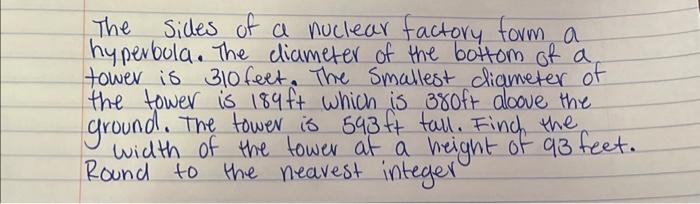 The sides of a nuclear factory form a
hyperbola. The diameter of the bottom of a
tower is 310 feet. The smallest diameter of
the tower is 189ft which is 380ft above the
ground. The tower is 593 ft tall. Find the
width of the tower at a height of 93 feet.
Round to the nearest integer